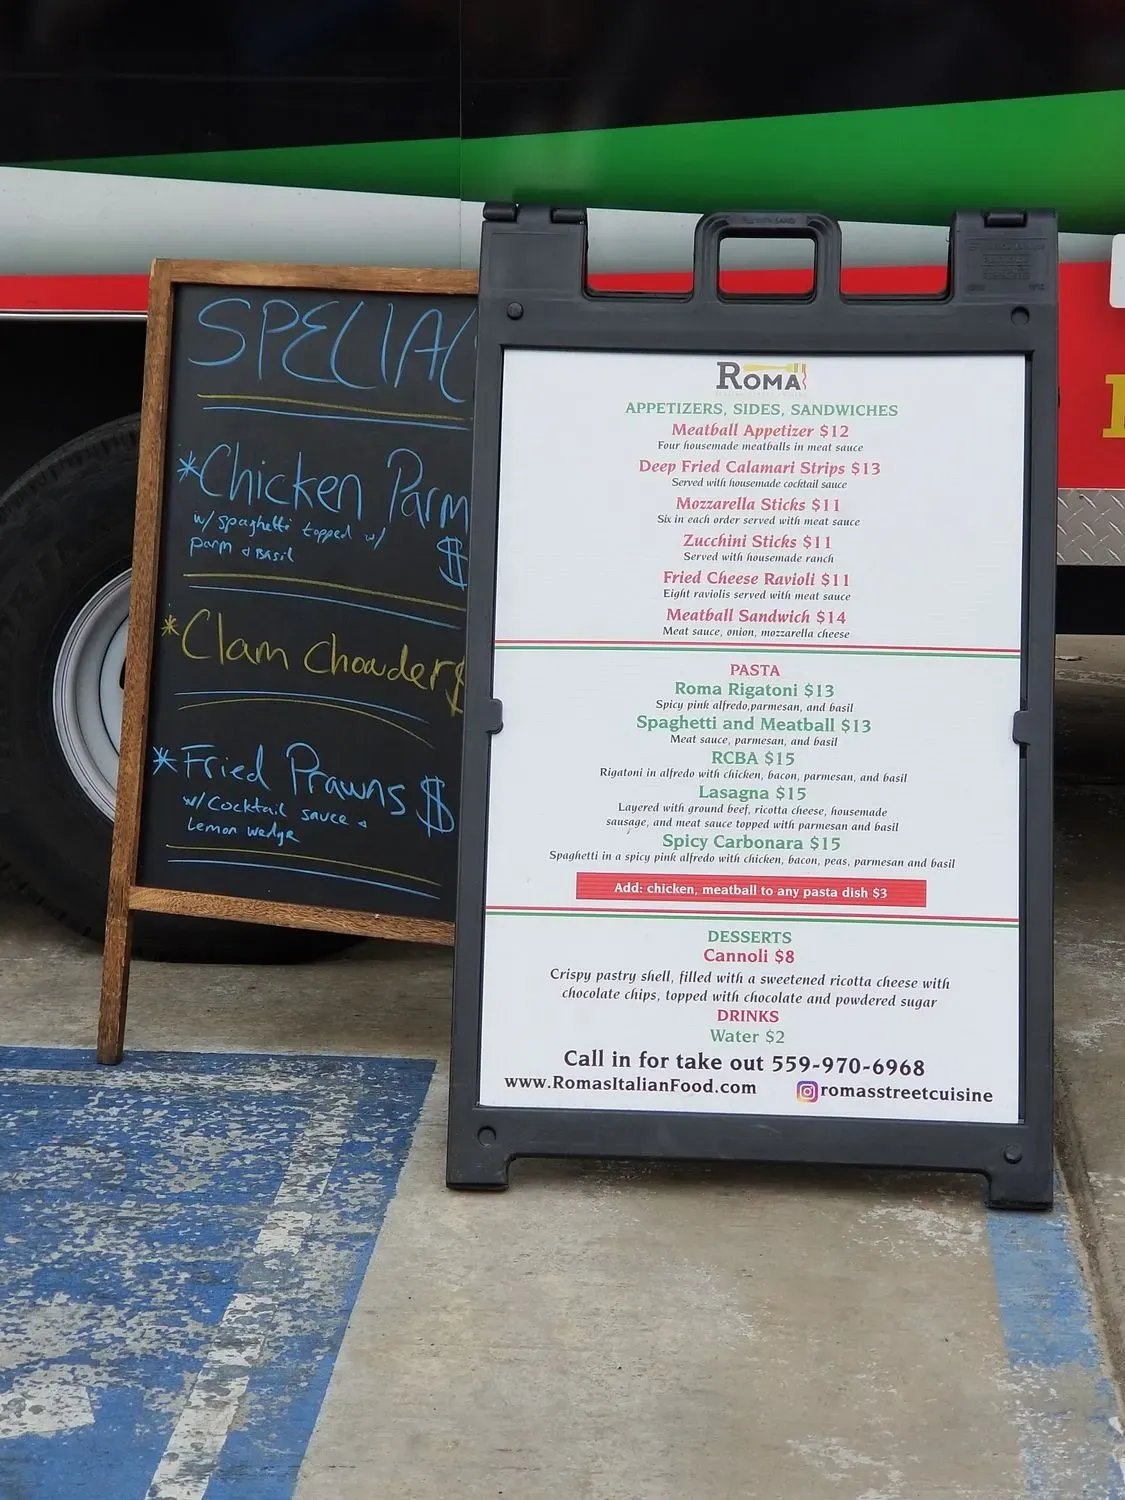 SPECIAL
*Chicken Parm
w/ spaghetti topped w/
parm & Basil
$
*Clam Chowder $
*Fried Prawns $
w/ Cocktail sauce &
Lemon wedge
ROMA
APPETIZERS, SIDES, SANDWICHES
Meatball Appetizer $12
Four housemade meatballs in meat sauce
Deep Fried Calamari Strips $13
Served with housemade cocktail sauce
Mozzarella Sticks $11
Six in each order served with meat sauce
Zucchini Sticks $11
Served with housemade ranch
Fried Cheese Ravioli $11
Eight raviolis served with meat sauce
Meatball Sandwich $14
Meat sauce, onion, mozzarella cheese
PASTA
Roma Rigatoni $13
Spicy pink alfredo,parmesan, and basil
Spaghetti and Meatball $13
Meat sauce, parmesan, and basil
RCBA $15
Rigatoni in alfredo with chicken, bacon, parmesan, and basil
Lasagna $15
Layered with ground beef, ricotta cheese, housemade
sausage, and meat sauce topped with parmesan and basil
Spicy Carbonara $15
Spaghetti in a spicy pink alfredo with chicken, bacon, peas, parmesan and basil
Add: chicken, meatball to any pasta dish $3
DESSERTS
Cannoli $8
Crispy pastry shell, filled with a sweetened ricotta cheese with
chocolate chips, topped with chocolate and powdered sugar
DRINKS
Water $2
Call in for take out 559-970-6968
www.RomasItalianFood.com
romasstreetcuisine